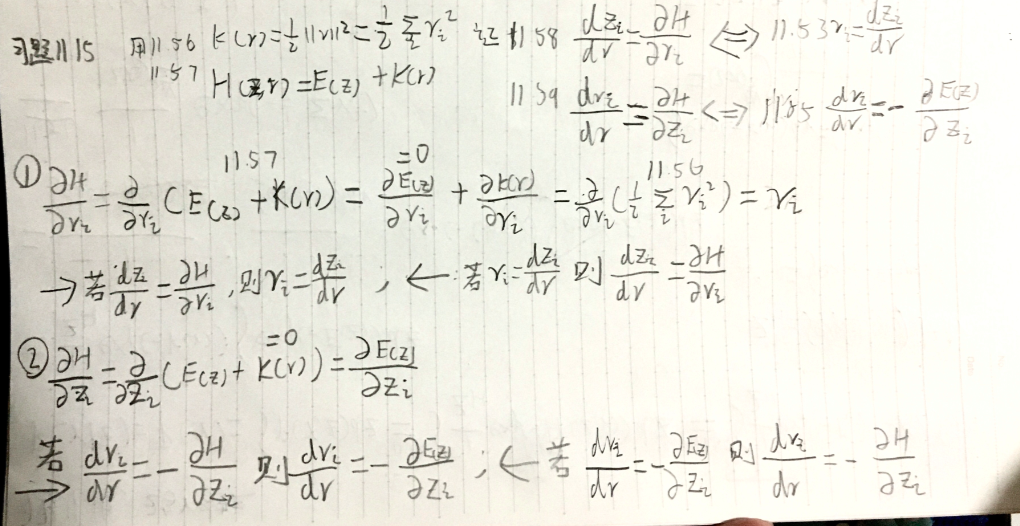 习题11.15 用11.56 K(r)=½||r||²=½∑ᵢrᵢ² 证 11.58 dzᵢ/dr=∂H/∂rᵢ ⟺ 11.53 rᵢ=dzᵢ/dr
11.57 H(z,r)=E(z)+K(r) 11.59 drᵢ/dr=∂H/∂zᵢ ⟺ 11.55 drᵢ/dr=-∂E(z)/∂zᵢ
11.57 =0 11.56
① ∂H/∂rᵢ=∂/∂rᵢ(E(z)+K(r))=∂E(z)/∂rᵢ+∂K(r)/∂rᵢ=∂/∂rᵢ(½∑ᵢrᵢ²)=rᵢ
→若dzᵢ/dr=∂H/∂rᵢ,则rᵢ=dzᵢ/dr;←:若rᵢ=dzᵢ/dr则dzᵢ/dr=∂H/∂rᵢ
=0
② ∂H/∂zᵢ=∂/∂zᵢ(E(z)+K(r))=∂E(z)/∂zᵢ
→若drᵢ/dr=-∂H/∂zᵢ则drᵢ/dr=-∂E(z)/∂zᵢ;←若drᵢ/dr=-∂E(z)/∂zᵢ则drᵢ/dr=-∂H/∂zᵢ